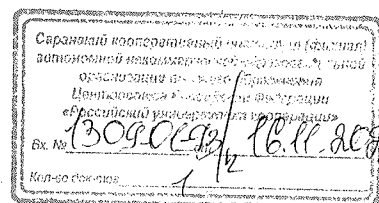 Саранский кооперативный институт (филиал)
автономной некоммерческой образовательной
организации высшего образования
Центросоюза Российской Федерации
«Российский университет кооперации»
Вх. № 16.11.20
Кол-во
1